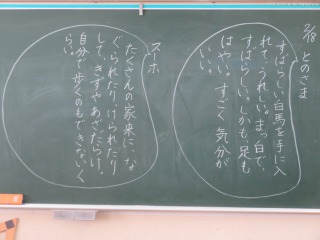 2/18
とのさま
すばらしい白馬を手に入
れて、うれしい。まっ白で、
すばらしい。しかも、足も
はやい。すごく気分が
いい。
スホ
たくさんの家来に、な
ぐられたり、けられたり
して、きずやあざだらけ。
自分で歩くのもできないく
らい。